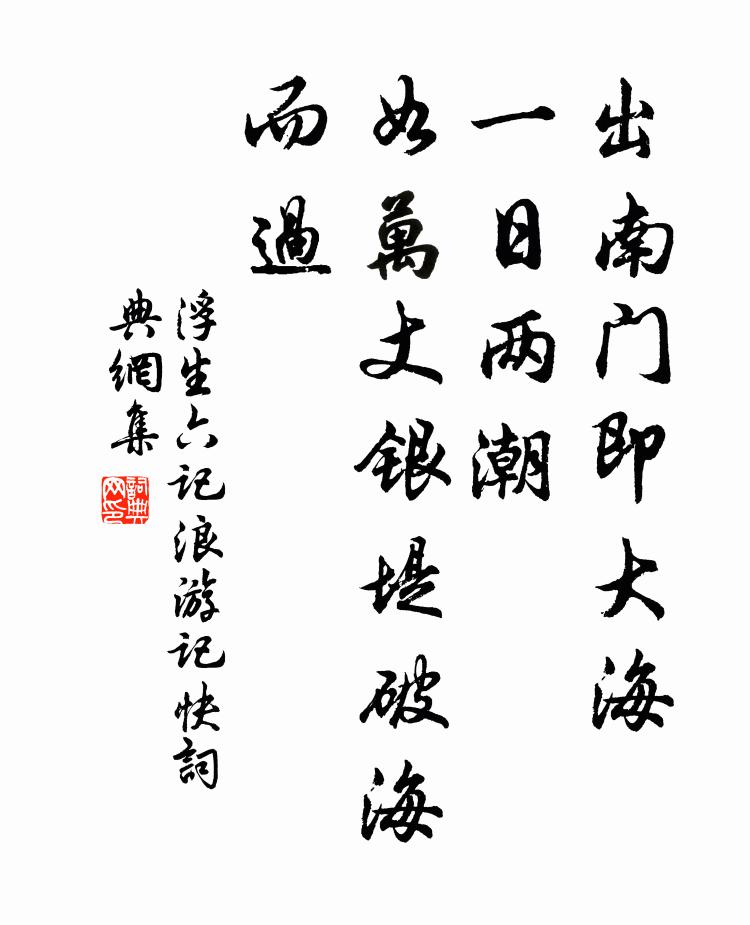 出南门即大海
一日两潮
如萬丈银堤破海
而過
浮生六记浪游记快詞
典網集
詞典
网印